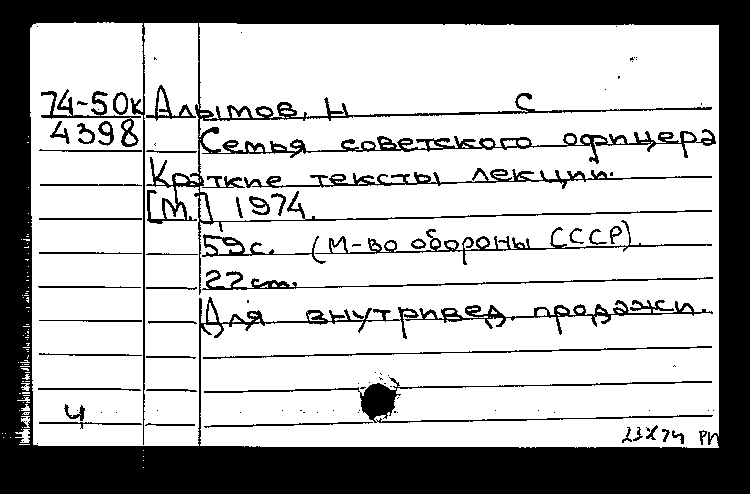 74-50к Алымов, Н С
4398 Семья советского офицера
Краткие тексты лекций.
[М.], 1974.
59с. (М-во обороны СССР).
22 cm.
Для внутривед. продажи.
4
23 X 74 РП